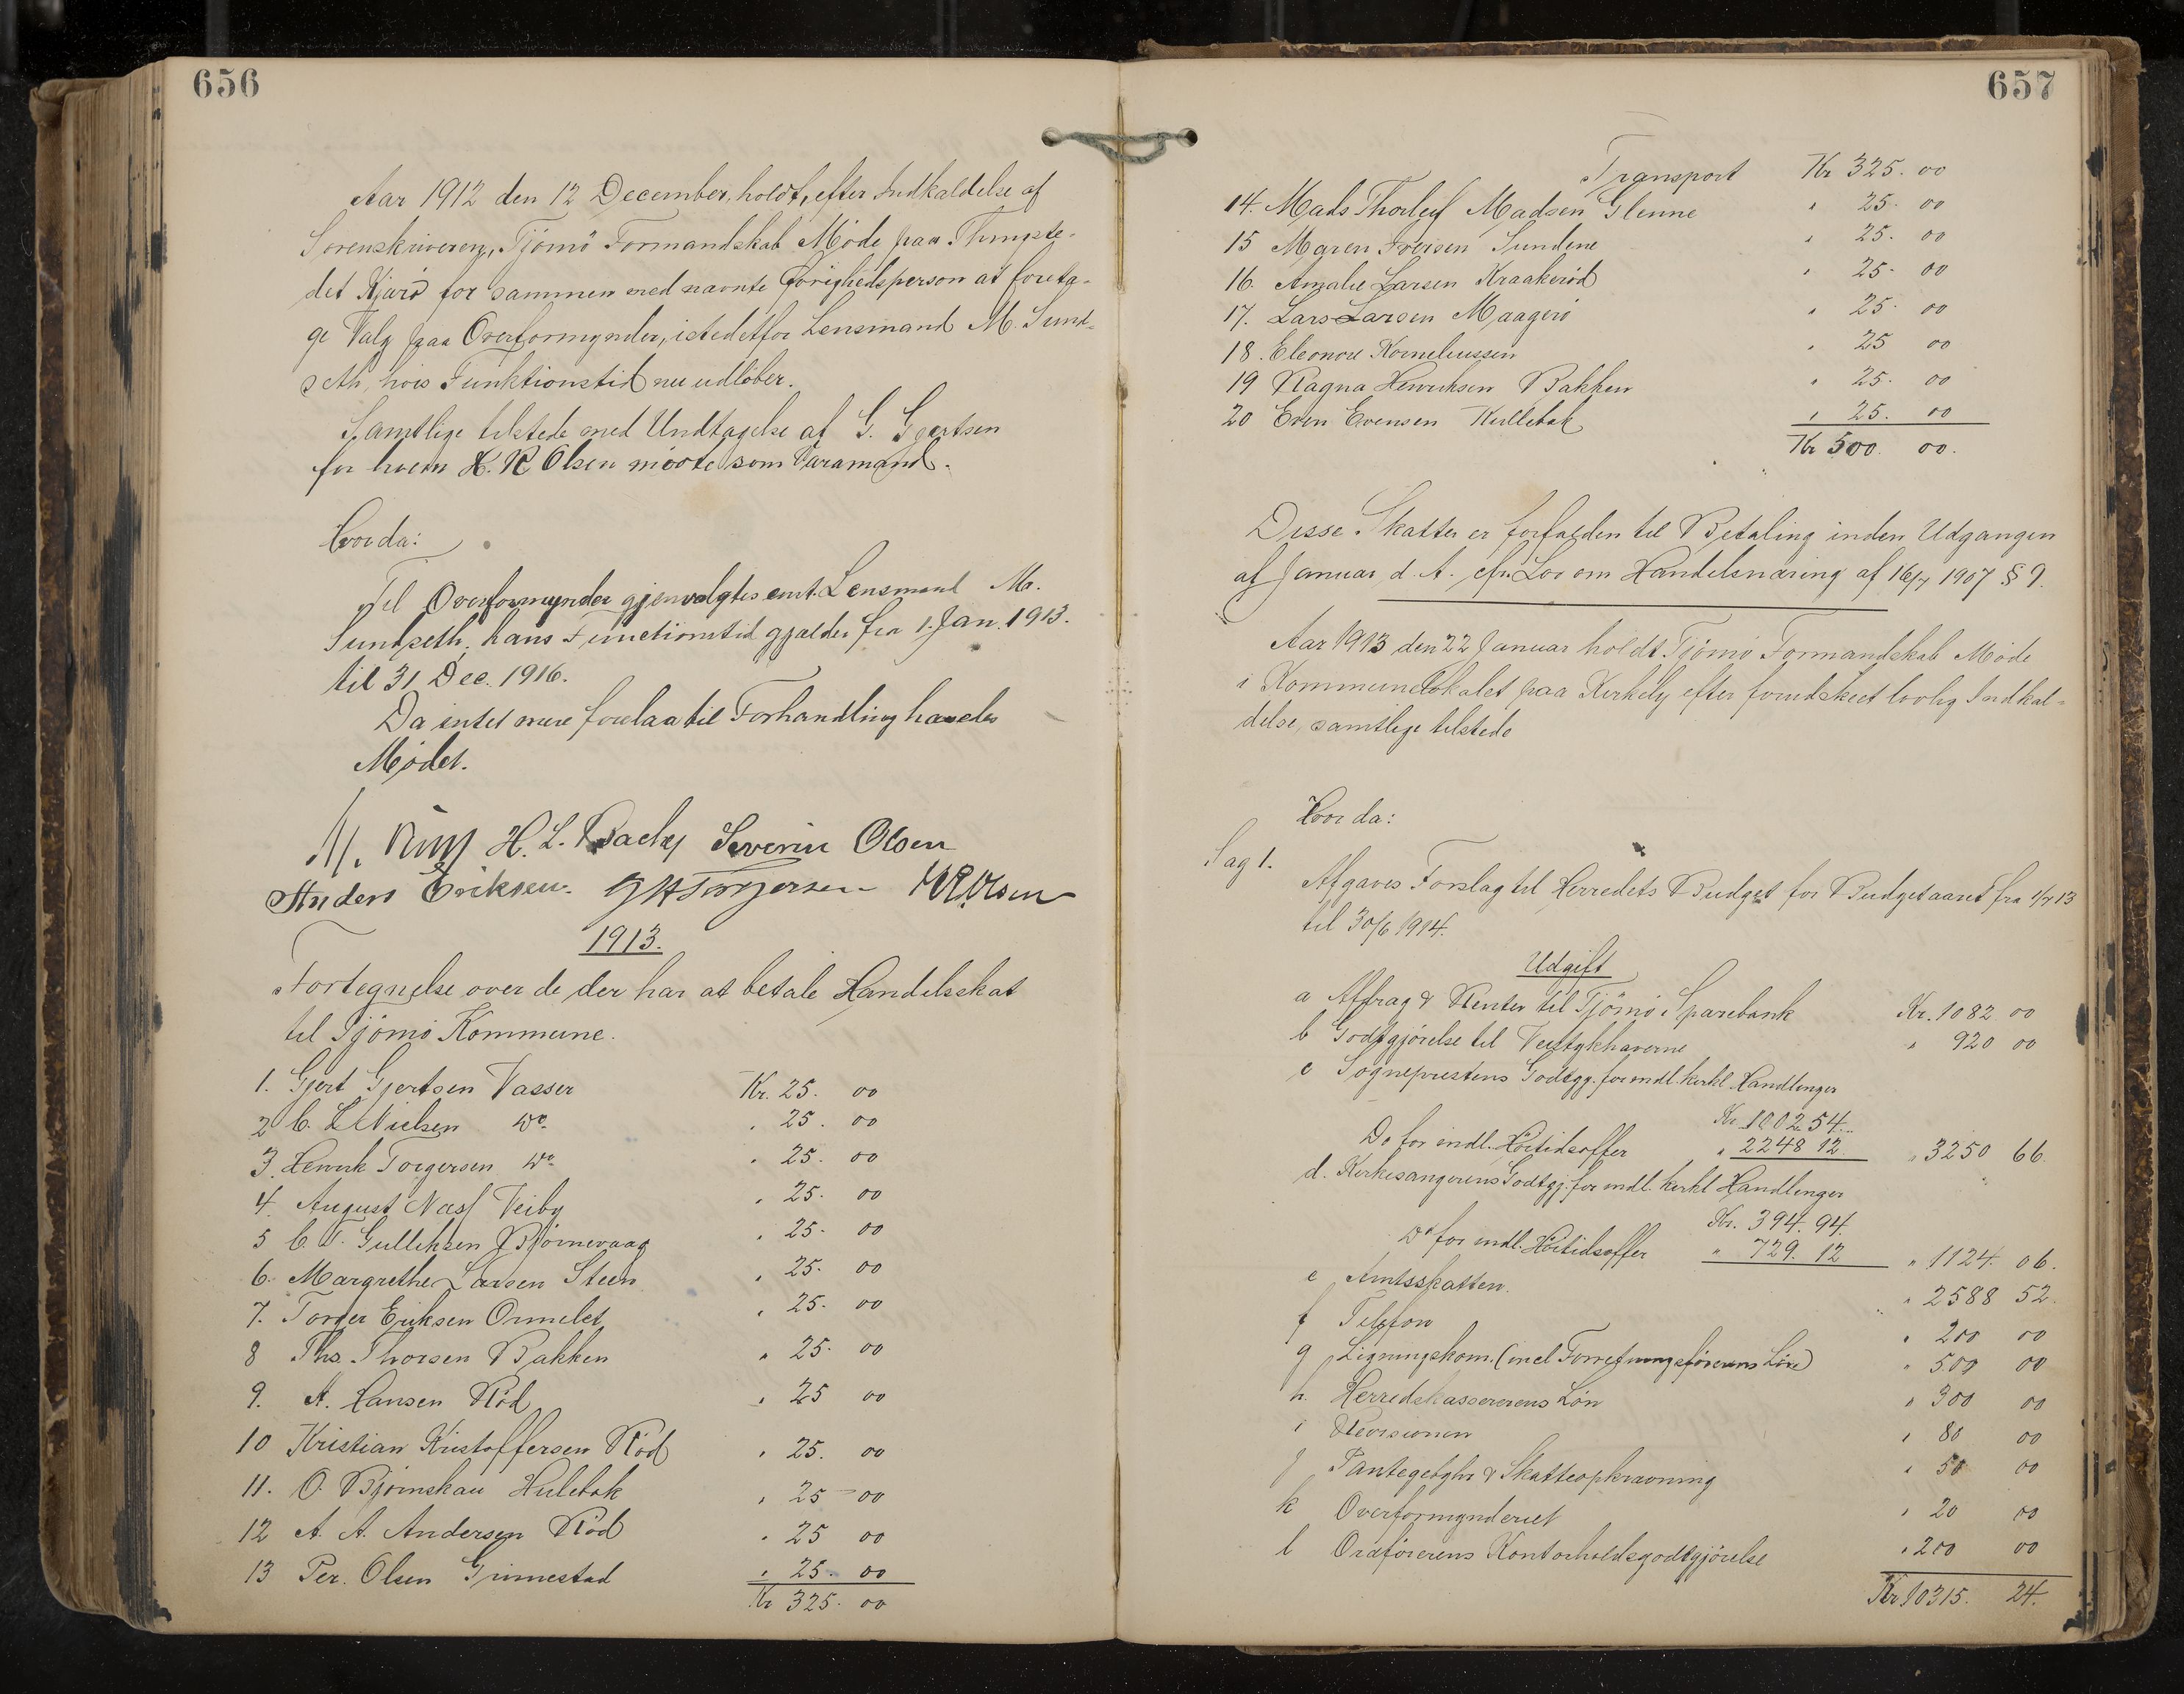 656
Aar 1912 den 12 December, holdt, efter Indkaldelse af
Sorenskriveren, Tjømø Formandskab Møde paa Thingste-
det Kjærø for sammen med nævnte Øvrighedsperson at foreta-
ge Valg paa Overformynder, istedetfor Lensmand M. Sund-
seth, hvis Funktionstid nu udløber.
Samtlige tilstede med Undtagelse af G. Gjertsen
for hvem H. R Olsen mødte som Varamand.
Hvor da:
Til Overformynder gjenvalgtes emt. Lensmand M.
Sundseth, hans Functionstid gjælder fra 1. Jan. 1913.
til 31 Dec. 1916.
Da intet mere forelaa til Forhandling hævedes
Mødet.
H. L. Backe Severin Olsen
Anders Eriksen. Torgersen HROlsen
1913.
Fortegnelse over de der har at betale Handelsskat
til Tjømø Kommune.
1. Gjert Gjertsen Vasser Kr. 25. 00
2 C. L Nielsen Do. " 25. 00
3. Henrik Torgersen Do " 25. 00
4. August Næss Veiby " 25. 00
5 C. T. Gulliksen Bjørnevaag " 25. 00
6. Margrethe Larsen Steen " 25. 00
7. Torger Eriksen Ormelet " 25. 00
8 Ths. Thorsen Bakken " 25. 00
9. A. Hansen Rød " 25 00
10 Kristian Kristoffersen Rød " 25. 00
11. O. Bjørnskau Hulebak " 25 00
12 A. A. Andersen Rød " 25 00
13 Per. Olsen Grimestad " 25. 00
Kr 325. 00
657
Transport Kr 325. 00
14. Mads Thorleif Madsen Glenne " 25. 00
15 Maren Sundene " 25. 00
16. Amalie Larsen Kraakerød " 25. 00
17. Lars Larsen Maagerø " 25. 00
18. Eleonore Korneliussen " 25 00
19 Ragna Henriksen Bakken " 25. 00
20 Even Evensen Kullebak " 25. 00
Kr 500. 00.
Disse Skatter er forfalden til Betaling inden Udgangen
af Januar d. A. cfr. Lov om Handelsnæring af 16/7 1907 § 9.
Aar 1913 den 22 Januar holdt Tjømø Formandskab Møde
i Kommunelokalet paa Kirkely efter forudskeet lovlig Indkal-
delse, samtlige tilstede
Hvor da:
Sag 1.
Afgaves Forslag til Herredets Budget for Budgetaaret fra 1/7 13
til 30/6 1914.
Udgift
a Afdrag & Renter til Tjømø Sparebank Kr. 1082 00
b Godtgjørelse til Vertykhaverne " 920 00
c Sogneprestens Godtgj. for indl. kirkl. Handlinger
Kr. 1002 54.
Do for indl. Høitidsoffer " 2248 12 " 3250 66
d. Kirkesangerens Godtgj. for indl. kirkl Handlinger
Kr. 394. 94.
Do for indl. Høitidsoffer " 729. 12 " 1124. 06.
e Amtsskatten. " 2588 52.
f Telefon " 200 00
g Ligningskom. (incl Forretningsførerens Løn) " 500 00
h. Herredskassererens Løn " 300 00
i Revisionen " 80 00
j Pantegebyhr & Skatteopkrævning " 50 00
k Overformynderiet " 20 00
l Ordførerens Kontorholdsgodtgjørelse " 200 00
Kr 10315. 24.